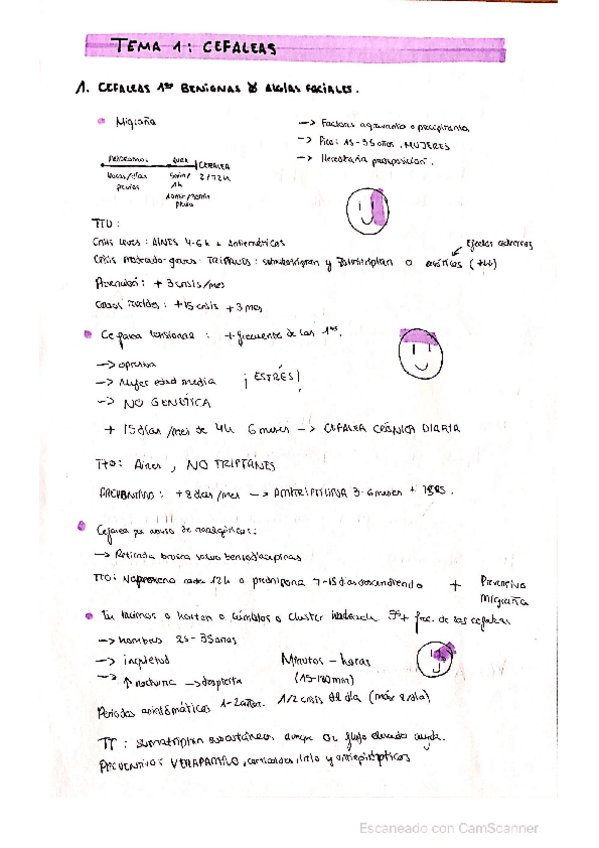 TEMA 1: CEFALEAS
1. CEFALEAS 1ªˢ BENIGNAS Y ALGIAS FACIALES.
Migraña
→ Factores agravante o precipitante
→ Pico: 15-35 años. MUJERES
→ Hereditaria predisposición.
PRÓDROMO: AURA CEFALEA
Horas/días previos 5min/1h 2/72h
TTO:
Crisis leves: AINES 4-6h + Antieméticos
Efectos adversos
Crisis moderado-graves: TRIPTANES: sumatriptan y o
Prevención: + 3 crisis/mes
+15 crisis + 3 mes
Cefalea tensional: + frecuente de las 1ªˢ.
→ opresiva
→ Mujer edad media ¡ESTRÉS!
→ NO GENÉTICA
+ 15 días/mes de 4h 6 meses → CEFALEA CRÓNICA DIARIA
Tto: Aines, NO TRIPTANES
PREVENTIVO: +8 días/mes → AMITRIPTILINA 3-6 meses +
Cefalea por abuso de analgésicos:
→ Retirada brusca salvo benzodiacepinas
TTO: Naproxeno cada 12h o prednisona 7-15 días descendiendo + Preventivo migraña
o horton o o cluster headache frec. de las cefaleas
→ hombres 25-35 años
→ inquietud Minutos - horas
→ ↑ nocturna → despierta (15-180min)
Periodos asintomáticos 1-2 años. 1/2 crisis al día (máx 8/día)
TT: sumatriptan subcutáneo, aunque O₂ flujo elevado ayuda.
PREVENTIVO: VERAPAMILO, corticoides, litio y antiepilépticos
Escaneado con CamScanner